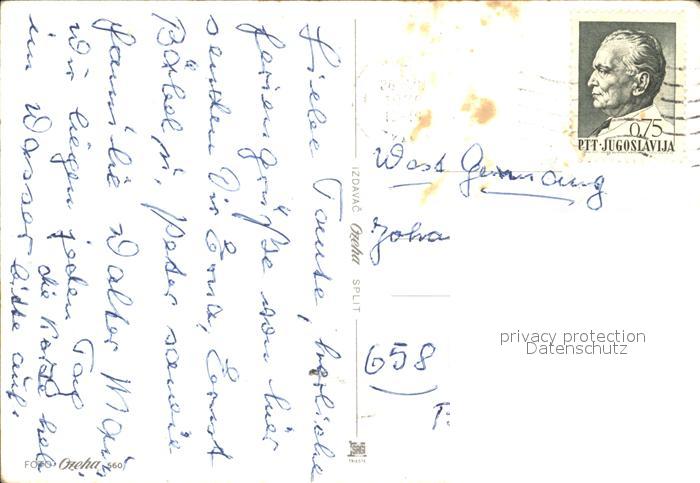 Liebe Tante, herzliche
Feriengrüße von hier
senden Dir Erna, Ernst
Bärbel u. Peter sowie
Familie Walter
Wir liegen jeden Tag
im Wasser
die Karte heb
bitte auf.
0,75
PTT·JUGOSLAVIJA
West Germany
Joha
658
IZDAVAČ Ozeha SPLIT
TRIESTE
FOTO Ozeha 560
privacy protection
Datenschutz